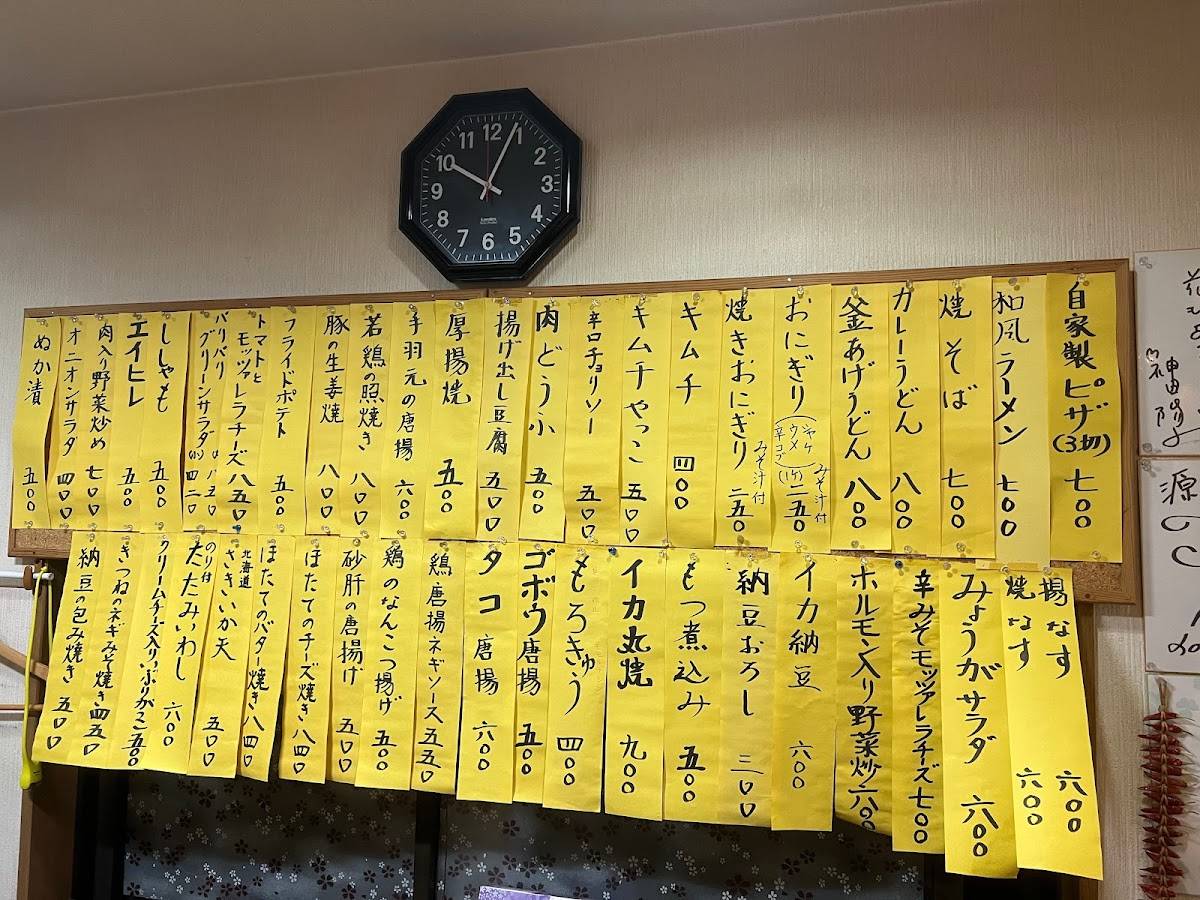 12
1
2
3
4
5
6
7
8
9
10
11
自家製ピザ(3切) 七〇〇
和風ラーメン 七〇〇
焼そば 七〇〇
カレーうどん 八〇〇
釜あげうどん 八〇〇
おにぎり(シャケ ウメ 辛コブ)(1ケ) みそ汁付 二五〇
焼きおにぎり みそ汁付 二五〇
キムチ 四〇〇
キムチやっこ 五〇〇
辛口チョリソー 五〇〇
肉どうふ 五〇〇
揚げ出し豆腐 五〇〇
厚揚焼 五〇〇
手羽元の唐揚 六〇〇
若鶏の照焼き 八〇〇
豚の生姜焼 八〇〇
フライドポテト 五〇〇
トマトと
モッツァレラチーズ 八五〇
バリバリ
グリーンサラダ
ししゃも 五〇〇
エイヒレ 五〇〇
肉入り野菜炒め 七〇〇
オニオンサラダ 四〇〇
ぬか漬 五〇〇
揚なす 六〇〇
焼なす 六〇〇
みょうがサラダ 六〇〇
辛みそモッツァレラチーズ 七〇〇
ホルモン入り野菜炒 六〇〇
イカ納豆 六〇〇
納豆おろし 三〇〇
もつ煮込み 五〇〇
イカ丸焼 九〇〇
もろきゅう 四〇〇
ゴボウ唐揚 五〇〇
タコ唐揚 六〇〇
鶏唐揚ネギソース 五五〇
鶏のなんこつ揚げ 五〇〇
砂肝の唐揚げ 五〇〇
ほたてのチーズ焼き 八四〇
ほたてのバター焼き 八四〇
北海道
さきいか天 五〇〇
のり付
たたみいわし 六〇〇
クリームチーズ入りいぶりがっこ 五〇〇
きつねのネギみそ焼き 四五〇
納豆の包み焼き 五〇〇
神陽子
源